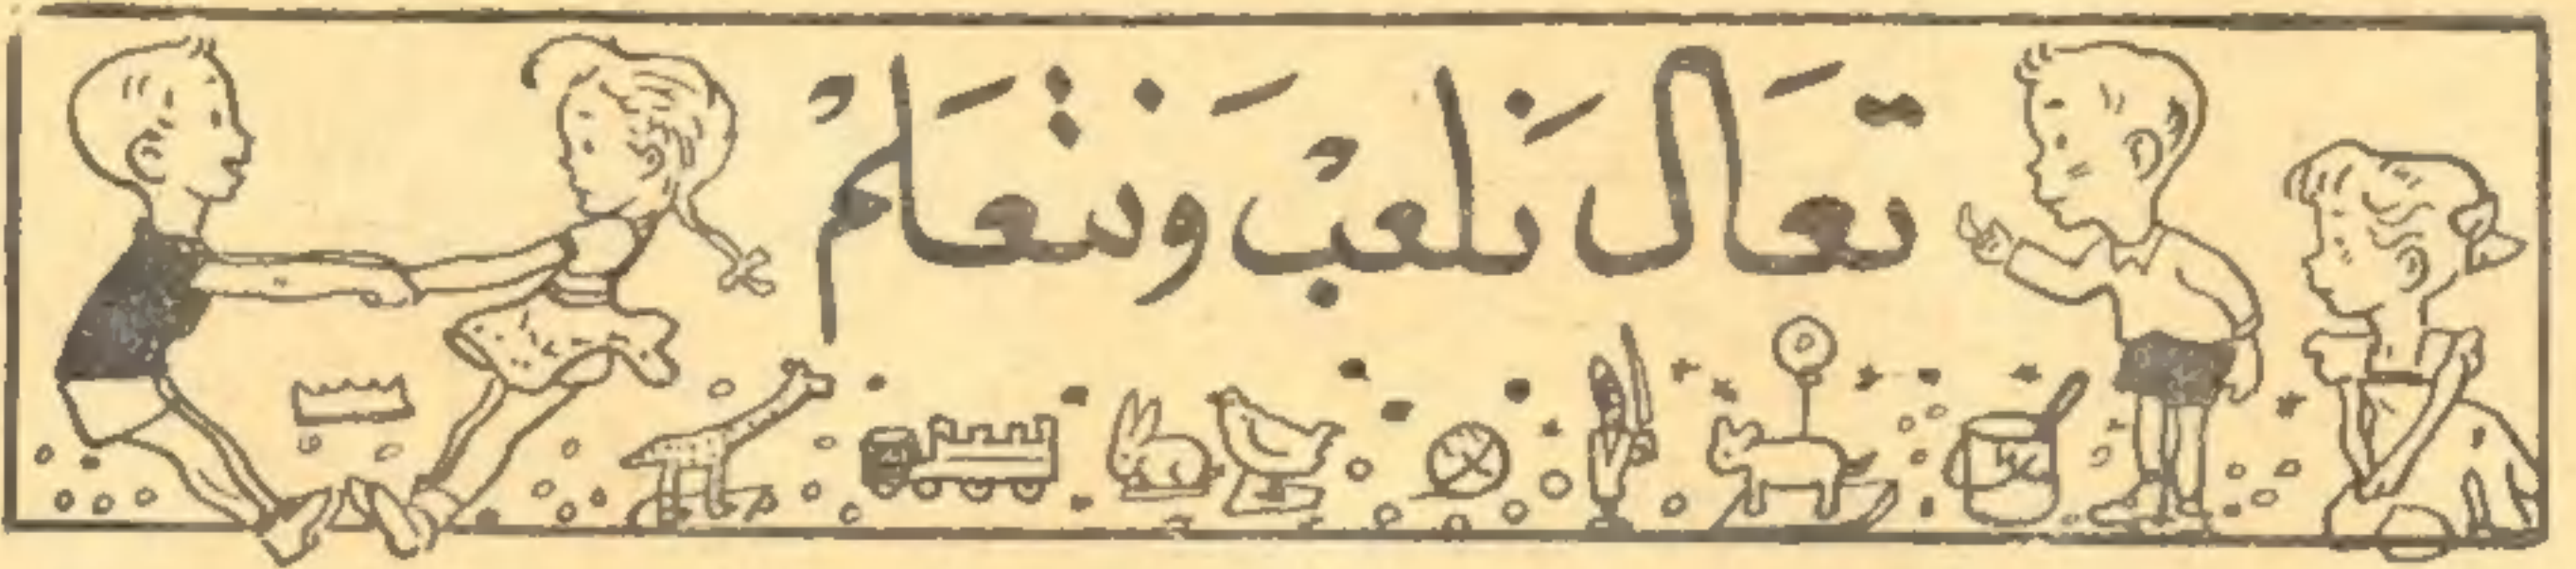 تعَال نَلعبْ وَنتعَلمْ